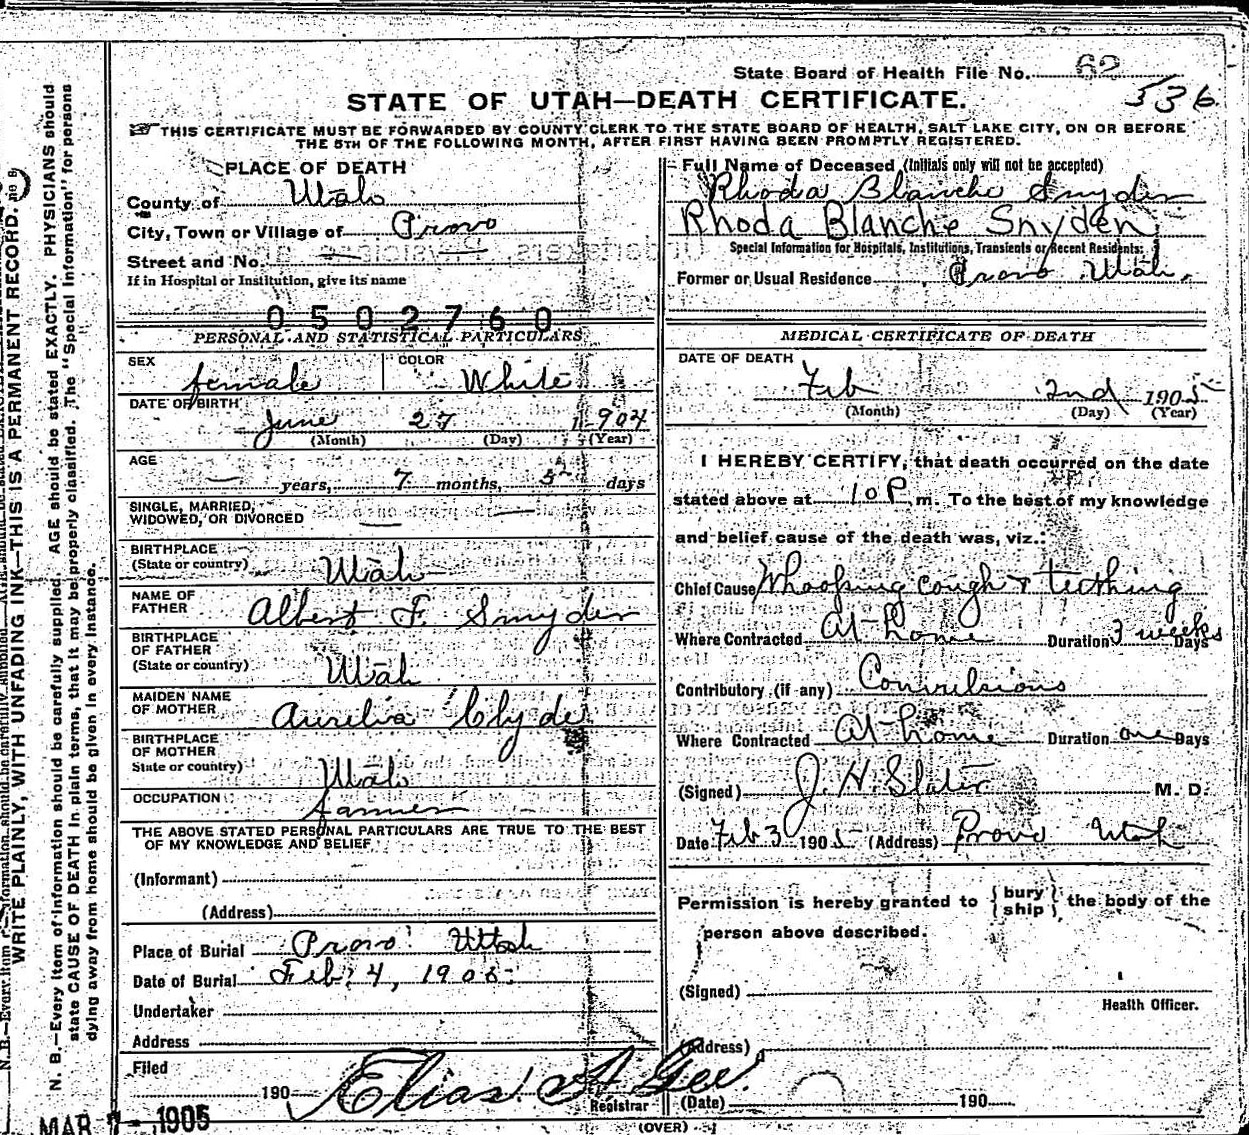 State Board of Health File No. 62
536
STATE OF UTAH—DEATH CERTIFICATE.
THIS CERTIFICATE MUST BE FORWARDED BY COUNTY CLERK TO THE STATE BOARD OF HEALTH, SALT LAKE CITY, ON OR BEFORE
THE 5TH OF THE FOLLOWING MONTH, AFTER FIRST HAVING BEEN PROMPTLY REGISTERED.
PLACE OF DEATH
County of Utah
City, Town or Village of Provo
Street and No.
If in Hospital or Institution, give its name
0502760
PERSONAL AND STATISTICAL PARTICULARS
SEX female COLOR White
DATE OF BIRTH
June 27 1904
(Month) (Day) (Year)
AGE
— years, 7 months, 5 days
SINGLE, MARRIED,
WIDOWED, OR DIVORCED
BIRTHPLACE
(State or country) Utah
NAME OF
FATHER Albert F. Snyder
BIRTHPLACE
OF FATHER
(State or country) Utah
MAIDEN NAME
OF MOTHER Aurelia Clyde
BIRTHPLACE
OF MOTHER
State or country) Utah
OCCUPATION farmer
THE ABOVE STATED PERSONAL PARTICULARS ARE TRUE TO THE BEST
OF MY KNOWLEDGE AND BELIEF
(Informant)
(Address)
Place of Burial Provo Utah
Date of Burial Feb. 4, 1905
Undertaker
Address
Filed
190 Elias A. Gee.
Registrar
MAR 7 - 1905
Full Name of Deceased (Initials only will not be accepted)
Rhoda Blanche Snyder
Rhoda Blanche Snyden
Special Information for Hospitals, Institutions, Transients or Recent Residents:
Former or Usual Residence Provo Utah.
MEDICAL CERTIFICATE OF DEATH
DATE OF DEATH
Feb 2nd 1905
(Month) (Day) (Year)
I HEREBY CERTIFY, that death occurred on the date
stated above at 10 P m. To the best of my knowledge
and belief cause of the death was, viz.:
Chief Cause Whooping cough & teething
Where Contracted At home Duration 3 weeks Days
Contributory (if any) Convulsions
Where Contracted At home Duration one Days
(Signed) J. H. Slater M. D.
Date Feb 3 1905 (Address) Provo Utah
Permission is hereby granted to {bury
ship} the body of the
person above described.
(Signed)
Health Officer.
(Address)
(Date) 190
(OVER)
WRITE PLAINLY, WITH UNFADING INK—THIS IS A PERMANENT RECORD.
N. B.—Every item of information should be carefully supplied. AGE should be stated EXACTLY. PHYSICIANS should
state CAUSE OF DEATH in plain terms, that it may be properly classified. The "Special Information" for persons
dying away from home should be given in every instance.